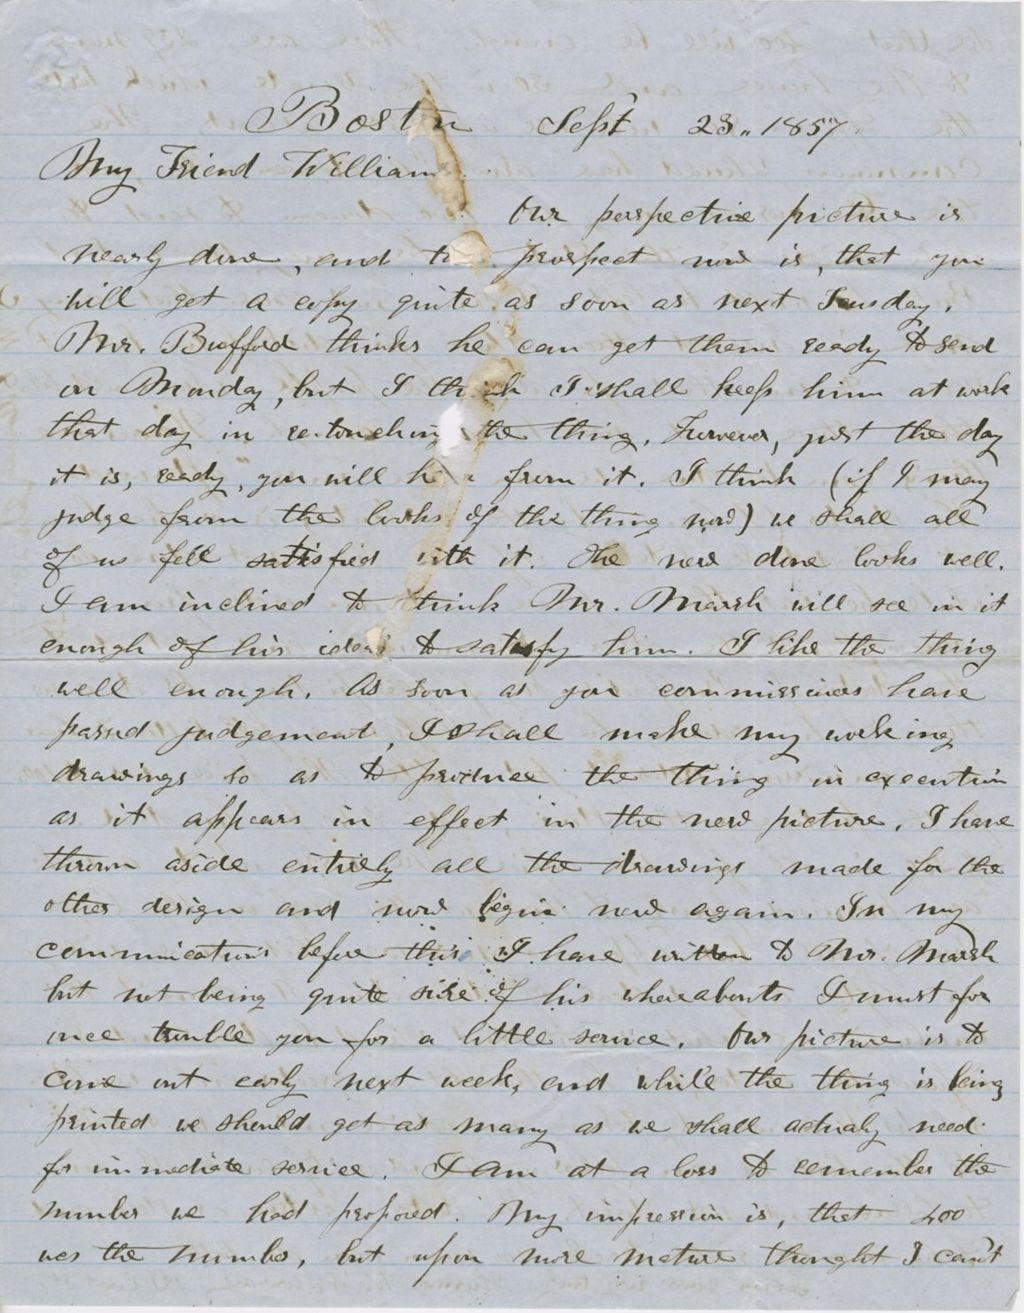 Boston Sept 23, 1857
My Friend William
Our perspective picture is
nearly done, and the prospect now is, that you
will get a copy quite as soon as next Tuesday.
Mr. Bufford thinks he can get them ready to send
on Monday, but I think I shall keep him at work
that day in retouching the thing. However, just the day
it is, ready, you will h from it. I think (if I may
judge from the looks of the thing now) we shall all
of us fell satisfied with it. The new dome looks well.
I am inclined to think Mr. Marsh will see in it
enough of his ideas to satisfy him. I like the thing
well enough. As soon as you commissioners have
passed judgement, I shall make my working
drawings so as to produce the thing in execution
as it appears in effect in the new picture. I have
thrown aside entirely all the drawings made for the
other design and now begin new again. In my
communications before this I have written to Mr. Marsh
but not being quite sure of his whereabouts I must for
once trouble you for a little service. Our picture is to
come out early next week, and while the thing is being
printed we should get as many as we shall actualy need
for immediate service. I am at a loss to remember the
number we had proposed. My impression is, that 400
was the number, but upon more mature thought I can't